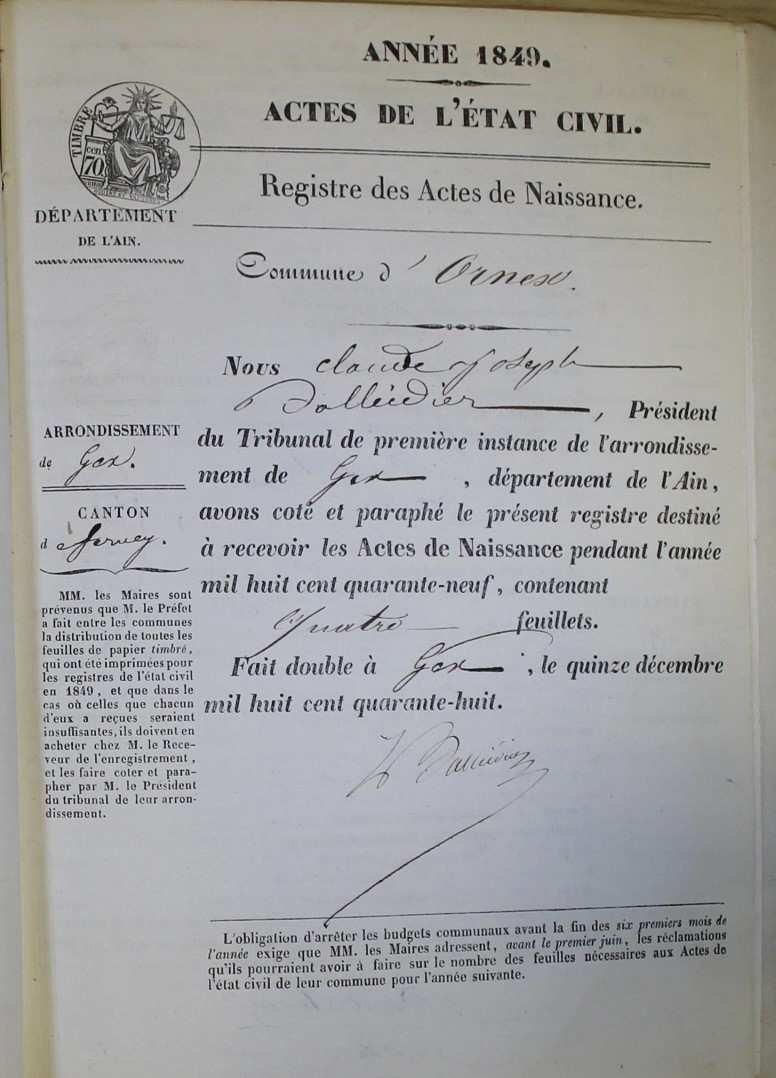 ANNÉE 1849.
ACTES DE L'ÉTAT CIVIL.
Registre des Actes de Naissance.
TIMBRE
cen
70
DÉPARTEMENT
DE L'AIN.
Commune d' Ornex.
Nous Claude Joseph
Dallédier, Président
du Tribunal de première instance de l'arrondisse-
ment de Gex, département de l'Ain,
avons coté et paraphé le présent registre destiné
à recevoir les Actes de Naissance pendant l'année
mil huit cent quarante-neuf, contenant
Quatre feuillets.
Fait double à Gex, le quinze décembre
mil huit cent quarante-huit.
Dallédier
ARRONDISSEMENT
de Gex.
CANTON
d Ferney.
MM. les Maires sont
prévenus que M. le Préfet
a fait entre les communes
la distribution de toutes les
feuilles de papier timbré,
qui ont été imprimées pour
les registres de l'état civil
en 1849, et que dans le
cas où celles que chacun
d'eux a reçues seraient
insuffisantes, ils doivent en
acheter chez M. le Rece-
veur de l'enregistrement,
et les faire coter et para-
pher par M. le Président
du tribunal de leur arron-
dissement.
L'obligation d'arrêter les budgets communaux avant la fin des six premiers mois de
l'année exige que MM. les Maires adressent, avant le premier juin, les réclamations
qu'ils pourraient avoir à faire sur le nombre des feuilles nécessaires aux Actes de
l'état civil de leur commune pour l'année suivante.